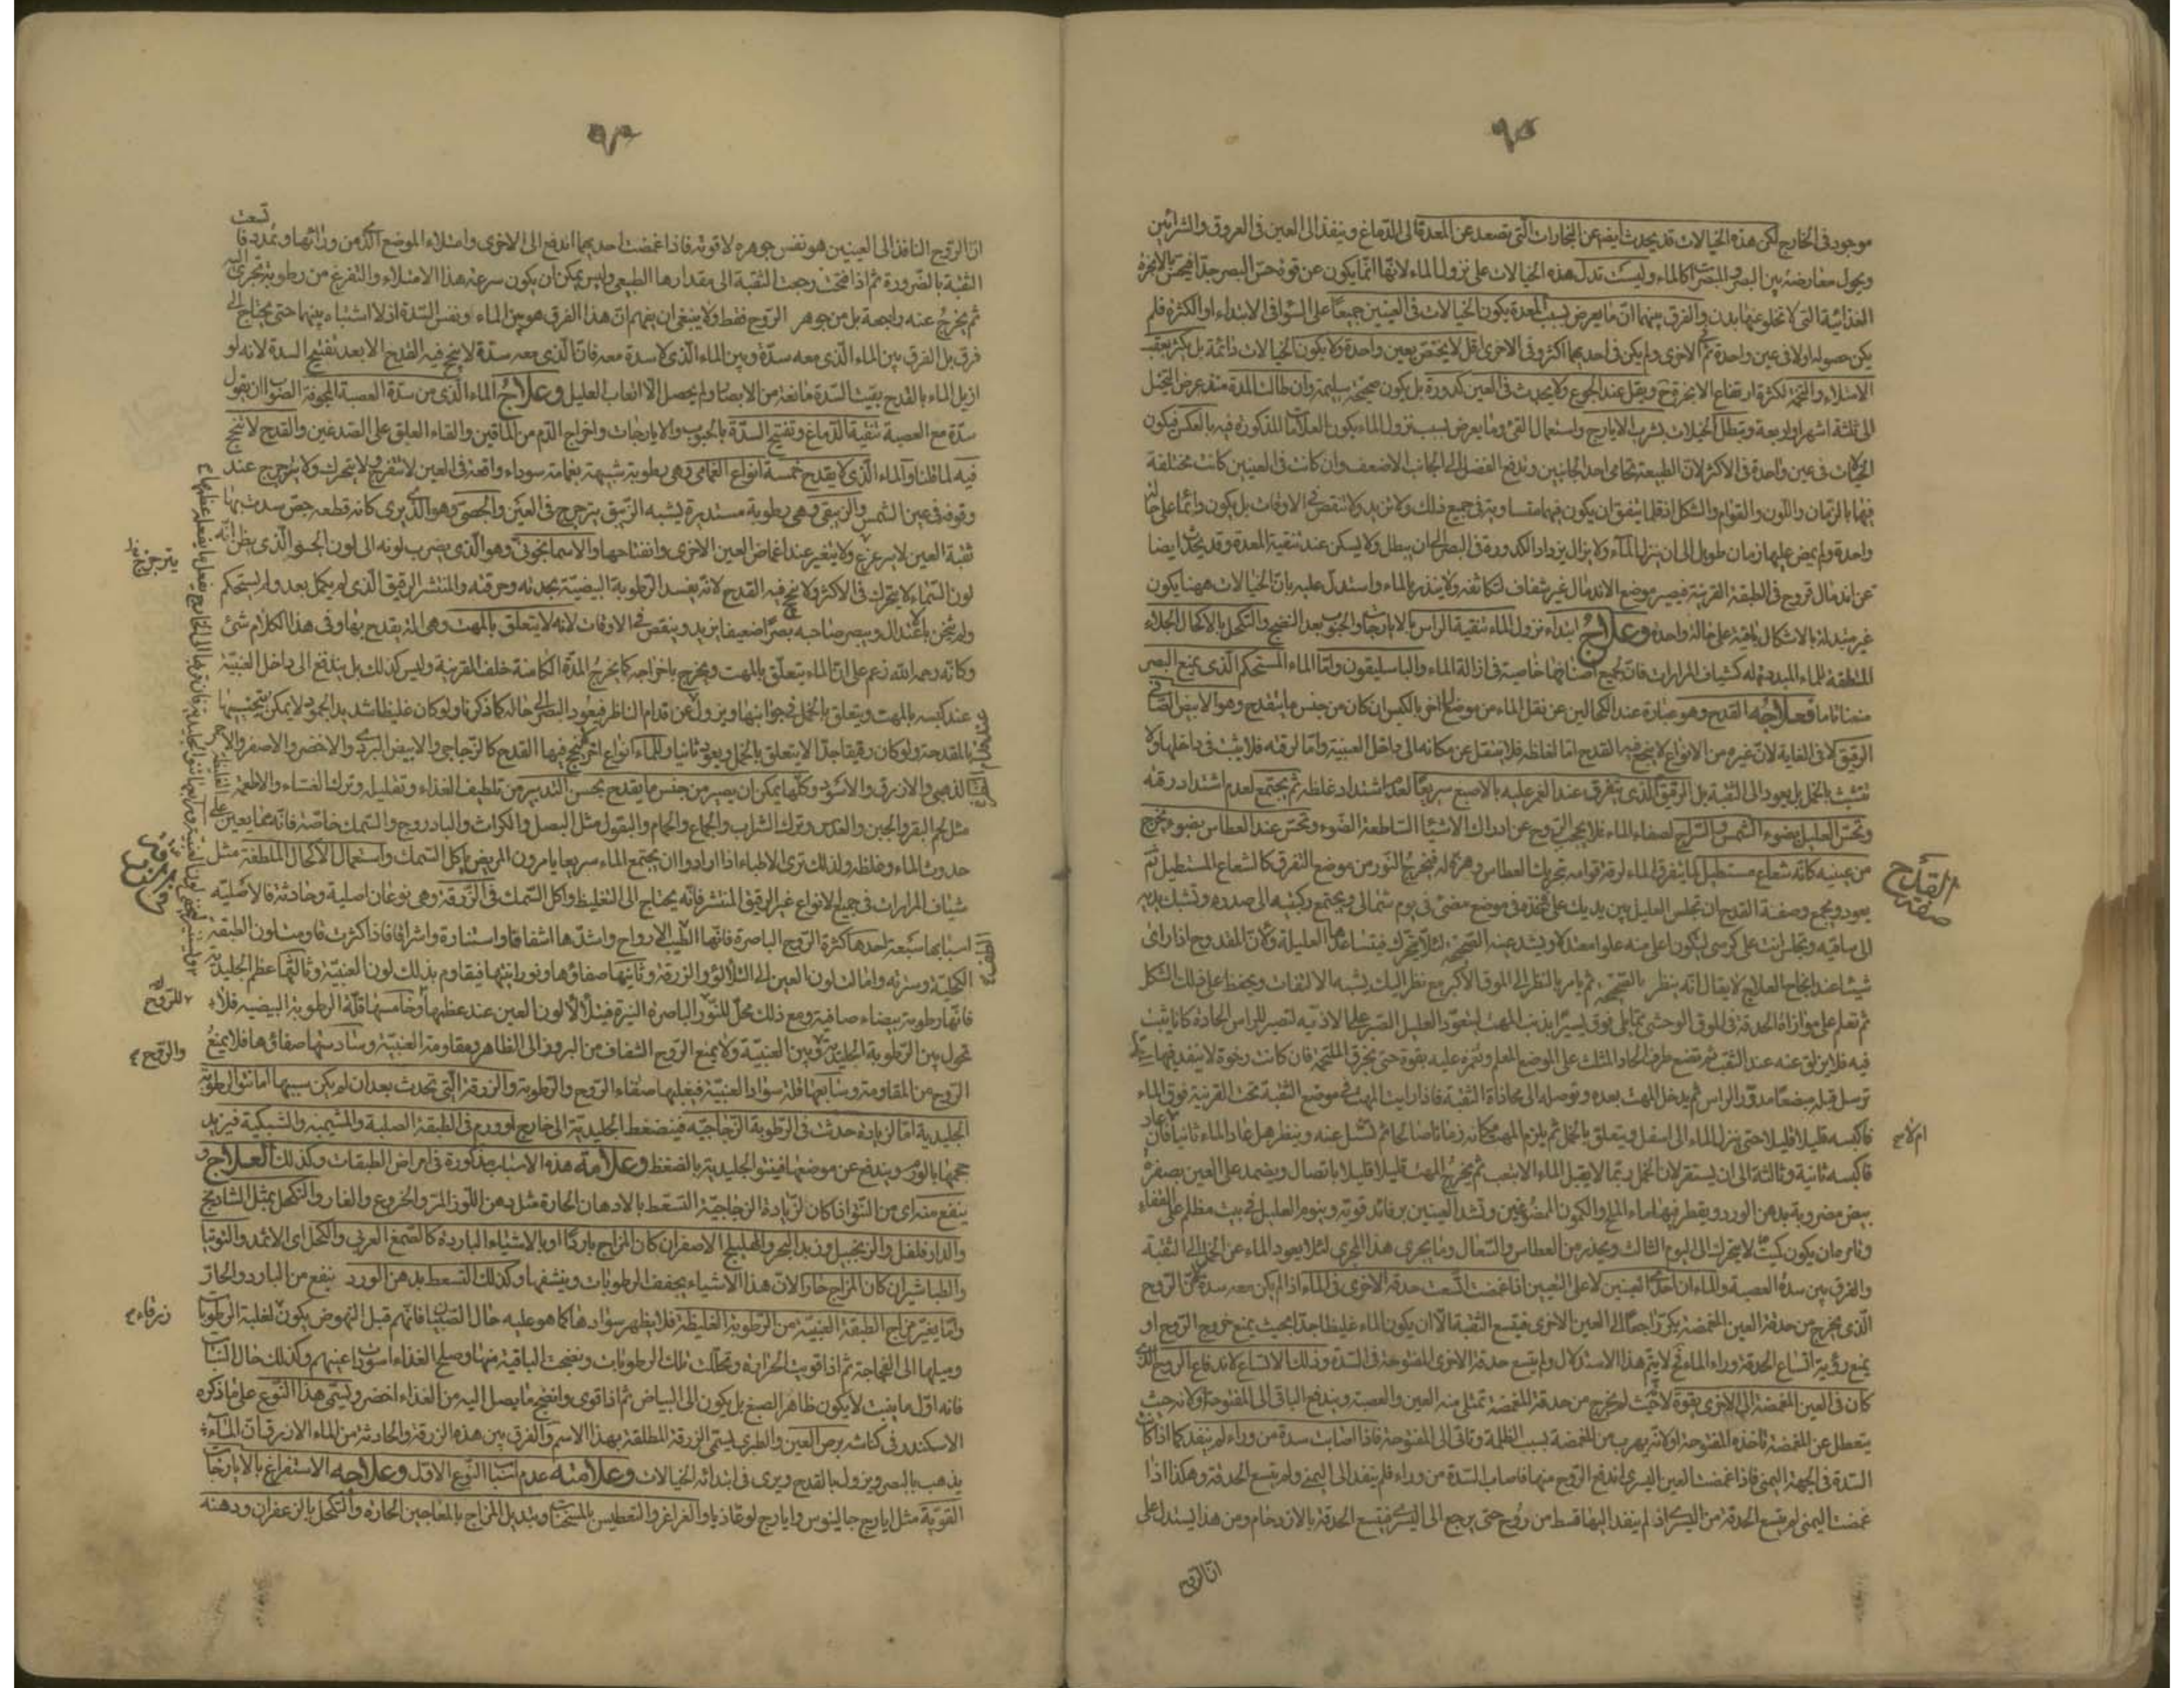 ٩٥
موجود فى الخارج لكن هذه الخيالات قد يحدث ايضا عن البخارات التى تصعد عن المعدة الى الدماغ وينفذ الى العين فى العروق والشرايين
ويحول معارضة بين البصر والمبصر كالماء وليست تدل هذه الخيالات على نزول الماء لانها انما يكون عن قوة حس البصر جدا فيحس بالابخرة
الغذائية التى لا تخلو عنها بدن والفرق بينهما ان ما يعرض بسبب المعدة يكون الخيالات فى العينين جميعا على السوا فى الابتداء او الكثرة فلم
يكن حصوله اولا فى عين واحدة ثم الاخرى ولم يكن فى احديهما اكثر وفى الاخرى اقل لا يختص بعين واحدة ولا يكون الخيالات دائمة بل يكثر بعقب
الامتلاء والتخمة لكثرة ارتفاع الابخرة ويقل عند الجوع ولا يحدث فى العين كدورة بل يكون صحيحة سليمة وان طالت المدة منذ عرض التخيل
الى ثلثة اشهر او اربعة وتبطل الخيالات بشرب الايارج واستعمال القئ وما يعرض بسبب نزول الماء يكون العلامات المذكورة فيه بالعكس فيكون
الخيالات فى عين واحدة فى الاكثر لان الطبيعة تحامى احد الجانبين وتدفع الفضل الى الجانب الاضعف وان كانت فى العينين كانت مختلفة
فيها بالزمان واللون والقوام والشكل اذ قلما يتفق ان يكون فيهما متساوية فى جميع ذلك ولا تزيد ولا تنقص فى الاوقات بل يكون دائما على حالة
واحدة ولم يمض عليها زمان طويل الى ان ينزل الماء ولا يزال يزداد الكدورة فى البصر الى ان يبطل ولا يسكن عند تنقية المعدة وقد يحدث ايضا
عن اندمال قروح فى الطبقة القرنية فيصير موضع الاندمال غير شفاف لتكاثفه ولا ينذر بالماء واستدل عليه بان الخيالات ههنا يكون
غير متبدلة بالاشكال باقية على حالة واحدة وعلاج ابتداء نزول الماء تنقية الراس بالايارجات والحبوب بعد النضج والتكحل بالاكحال الجلاءة
الملطفة للماء المبددة له كشياف المرارات فان لجميع اصنافها خاصية فى ازالة الماء والباسليقون واما الماء المستحكم الذى يمنع البصر
منعا تاما فعلاجه القدح وهو عبارة عند الكحالين عن نقل الماء من موضع الى اخر بالكبس ان كان من جنس ما ينقدح وهو الابيض الصافى
الرقيق لا فى الغاية لان غيره من الانواع لا ينجع فيه القدح اما لغلظه فلا ينتقل عن مكانه الى داخل العنبية واما لرقته فلا يثبت فى داخلها ولا
تتشبث بالخمل بل يعود الى الثقبة بل الرقيق الذى يتفرق عند الغمز عليه بالاصبع سريعا لعدم اشتداد غلظه ثم يجتمع لعدم اشتداد رقته
ويحس العليل بضوء الشمس والسراج لصفاء الماء فلا يحجب الروح عن ادراك الاشياء الساطعة الضوء وتحس عند العطاس بضوء يخرج
من عينيه كانه شعاع مستطيل لما يتفرق الماء لرقة قوامه بتحريك العطاس وهزه له فيخرج النور من موضع التفرق كالشعاع المستطيل ثم
يعود ويجمع وصفة القدح ان تجلس العليل بين يديك على مخدة فى موضع مضئ فى يوم شمالى ويجتمع ركبتيه الى صدره وتشبك يديه
الى ساقيه وتجلس انت على كرسى ليكون اعلى منه علوا معتدلا ويشد عينه الصحيحة لئلا يتحرك
شيئا عند انجاح العلاج لا يقال انه ينظر بالصحيحة ثم يامر بالنظر الى الموق الاكبر مع نظر اليك بشبه الالتفات ويحفظ على ذلك الشكل
ثم تعلم على موازاة الحدقة فى الموق الوحشى مما يلى فوق يسيرا بذنب المهت ليتعود العليل الصبر على الاذية لتصير للراس الحادة مكانا يثبت
فيه فلا يزلق عنه عند الثقب ثم تضع طرف الحاد المثلث على الموضع المعلم وتغمزه عليه بقوة حتى يخرق الملتحمة فان كانت رخوة لا ينفذ فيها
ترسل قبله مبضعا مدور الراس ثم يدخل المهت بعده وتوصله الى محاذاة الثقبة فاذا رايت المهت فى موضع الثقبة تحت القرنية فوق الماء
فاكبسه قليلا قليلا حتى ينزل الماء الى اسفل ويتعلق بالخمل ثم يلزم المهت مكانه زمانا صالحا ثم تشيل عنه وينظر هل عاد الماء ثانيا فان عاد
فاكبسه ثانية وثالثة الى ان يستقر لان الخمل ربما لا يقبل الماء الا بتعب ثم يخرج المهت قليلا قليلا باتصال ويضمد على العين بصفرة
بيض مضروبة بدهن الورد ويقطر فيها ماء الملح والكمون الممضوغين وتشد العينين برفائد قوية وينوم العليل فى بيت مظلم على القفاء
وتامر بان يكون كميت لا يتحرك الى اليوم الثالث ويحذر من العطاس والسعال وما يجرى هذا المجرى لئلا يعود الماء عن الخمل الى الثقبة
والفرق بين سدة العصبة والماء ان احدى العينين لا على التعيين اذا غمضت اتسعت حدقة الاخرى فى الماء اذا لم يكن معه سدة لان الروح
الذى يخرج من حدقة العين المغمضة يكر راجعا الى العين الاخرى فيتسع الثقبة الا ان يكون الماء غليظا جدا بحيث يمنع خروج الروح او
يمنع رؤية اتساع الحدقة وراء الماء فح لا يتم هذا الاستدلال ولم يتسع حدقة الاخرى المفتوحة فى السدة وذلك الاتساع لاندفاع الروح الذى
كان فى العين المغمضة الى الاخرى بقوة لا حيث لم يخرج من حدقة المغمضة تمتلى منه العين والعصبة ويندفع الباقى الى المفتوحة او لانه حيث
يتعطل عن المغمضة تاخذه المفتوحة او لانه يهرب من المغمضة بسبب الظلمة وتاتى الى المفتوحة فاذا اصابت سدة من وراء لم ينفذ كما اذا كانت
السدة فى الجهة اليمنى فاذا غمضت العين اليسرى اندفع الروح منها فاصاب السدة من وراء فلم ينفذ الى اليمنى ولم يتسع الحدقة وهكذا اذا
غمضت اليمنى لم يتسع الحدقة من اليسرى اذ لم ينفذ اليها قسط من روح حتى يرجع الى اليسرى فيتسع الحدقة بالازدحام ومن هذا يستدل على
ان الروح
القدح
صفة
٩٦
ان الروح النافذ الى العينين هو نفس جوهره لا قوته فاذا غمضت احديهما اندفع الى الاخرى وامتلاء الموضع الذى من ورائها وتمدد فاتسعت
الثقبة بالضرورة ثم اذا فتحت رجعت الثقبة الى مقدارها الطبيعى وليس يمكن ان يكون سرعة هذا الامتلاء والتفرغ من رطوبة تجرى اليه
ثم يخرج عنه راجعة بل من جوهر الروح فقط ولا ينبغى ان يفهم ان هذا الفرق هو بين الماء ونفس السدة اذ لا اشتباه بينهما حتى يحتاج الى
فرق بل الفرق بين الماء الذى معه سدة وبين الماء الذى لا سدة معه فان الذى معه سدة لا ينجع فيه القدح الا بعد تفتيح السدة لانه لو
ازيل الماء بالقدح بقيت السدة مانعة من الابصار ولم يحصل الا اتعاب العليل وعلاج الماء الذى من سدة العصبة المجوفة الصواب ان يقول
سدة مع العصبة تنقية الدماغ وتفتيح السدة بالحبوب والايارجات واخراج الدم من الماقين والقاء العلق على الصدغين والقدح لا ينجح
فيه لما قلنا والماء الذى لا يقدح خمسة انواع الغمامى وهى رطوبة شبيهة بغمامة سوداء واقعة فى العين لا تتفرق ولا يتحرك ولا يترجرج عند
وقوفه فى عين الشمس والزيبقى وهى رطوبة مستديرة يشبه الزيبق يترجرج فى العين والجصى وهو الذى يرى كانه قطعة جص سدت بها
ثقبة العين لا يترعزع ولا يتغير عند اغماض العين الاخرى وانفتاحها والاسمانجونى وهو الذى يضرب لونه الى لون الجو الذى يظن انه
لون السماء لا يتحرك فى الاكثر ولا ينجح فيه القدح لانه يفسد الرطوبة البيضية بحدته وحرقته والمنتشر الرقيق الذى لم يكمل بعد ولم يستحكم
ولم يثخن باعتدال ويبصر صاحبه بصرا ضعيفا يزيد وينقص فى الاوقات لانه لا يتعلق بالمهت وهى الة يقدح بها وفى هذا الكلام شئ
وكانه رحمه الله زعم على ان الماء يتعلق بالمهت ويخرج باخراجه كما يخرج المدة الكامنة خلف القرنية وليس كذلك بل يندفع الى داخل العنبية
عند كبسه بالمهت ويتعلق بالخمل فى جوانبها ويزول عن قدام الناظر فيعود البصر الى حاله كما ذكرنا ولو كان غليظا شديد الجمود لا يمكن تنحيتها
بالمقدحة ولو كان رقيقا جدا لا يتعلق بالخمل ويعود ثانيا وللماء انواع اخر ينجح فيها القدح كالزجاجى والابيض البردى والاخضر والاصفر والاحمر
الذهبى والازرق والاسود وكلها يمكن ان يصير من جنس ما يقدح بحسن التدبير من تلطيف الغذاء وتقليله وترك العشاء والاطعمة الغليظة
مثل لحم البقر والجبن والعدس وترك الشراب والجماع والحمام والبقول مثل البصل والكراث والبادروج والسمك خاصة فانه مما يعين على
حدوث الماء وغلظه ولذلك ترى الاطباء اذا ارادوا ان يجتمع الماء سريعا يامرون المريض باكل السمك واستعمال الاكحال الملطفة مثل
شياف المرارات فى جميع الانواع غير الرقيق المنتشر فانه يحتاج الى التغليظ واكل السمك فى الزرقة وهى نوعان اصلية وحادثة فالاصلية
اسبابها سبعة احدها كثرة الروح الباصرة فانها الطيب الارواح واشدها اشفاقا واستنارة واشراقا فاذا كثرت قاومت لون الطبقة
الكحلية وسترته وامالت لون العين الى التلالؤ والزرقة وثانيها صفاؤها ونورانيتها فيقاوم بذلك لون العنبية وثالثها عظم الجليدية
فانها رطوبة بيضاء صافية ومع ذلك محل للنور الباصرة النيرة فيتلألأ لون العين عند عظمها وخامسها قلة الرطوبة البيضية فلا
تحول بين الرطوبة الجليدية وبين العنبية ولا يمنع الروح الشفاف من البروز الى الظاهر ومقاومة العنبية وسادسها صفاؤها فلا يمنع
الروح من المقاومة وسابعها قلة سواد العنبية فيغلبها صفاء الروح والرطوبة والزرقة التى تحدث بعد ان لم يكن سببها اما نتو الرطوبة
الجليدية اما لزيادة حدثت فى الرطوبة الزجاجية فينضغط الجليدية الى خارج او ورم فى الطبقة الصلبة والمشيمية والشبكية فيزيد
حجمها بالورم ويندفع عن موضعها فينتو الجليدية بالضغط وعلامة هذه الاسباب مذكورة فى امراض الطبقات وكذلك العلاج و
ينفع منه اى من النتو اذا كان لزيادة الزجاجية التسعط بالادهان الحارة مثل دهن اللوز المر والخروع والغار والتكحل بمثل الشاذنج
والدارفلفل والزنجبيل وزبد البحر والهليلج الاصفر ان كان المزاج باردا او بالاشياء الباردة كالصمغ العربى والكحل اى الاثمد والتوتيا
والطباشير ان كان المزاج حارا لان هذا الاشياء يجفف الرطوبات وينشفها وكذلك التسعط بدهن الورد ينفع من البارد والحار
واما يغير مزاج الطبقة العنبية من الرطوبة الغليظة فلا يظهر سوادها كما هو عليه حال الصبيان فانهم قبل النهوض يكون لغلبة الرطوبات
وميلها الى الفجاجة ثم اذا قويت الحرارة وتحللت تلك الرطوبات ونضجت الباقية منها وصلح الغذاء اسود اعينهم وكذلك حال النبات
فانه اول ما ينبت لا يكون ظاهر الصبغ بل يكون الى البياض ثم اذا قوى وانضج ما يصل اليه من الغذاء اخضر ويسمى هذا النوع على ما ذكره
الاسكندر فى كناشه برص العين والطبرى يسمى الزرقة المطلقة بهذا الاسم والفرق بين هذه الزرقة والحادثة من الماء الازرق ان الماء
يذهب بالبصر ويزول بالقدح ويرى فى ابتدائه الخيالات وعلامته عدم اسباب النوع الاول وعلاجه الاستفراغ بالايارجات
القوية مثل ايارج جالينوس وايارج لوغاذيا والغراغر والتعطيس بالمسخنات وتبديل المزاج بالمعاجين الحارة والتكحل بالزعفران ودهنه
للروح
والروح ٤
زرقاء ٣